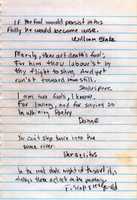 If the fool would persist in his
folly he would become wise.
William Blake
Merely, thou art death's fool;
For him thou labour'st by
thy flight to shun, And yet
run'st toward him still.
Shakespeare
I am two fools, I know,
For loving, and for saying so
In whining Poetry
Donne
You can't step twice into the
same river.
Heraclitus
In the real dark night of the soul it is
always three o'clock in the morning.
F. Scott Fitzgerald